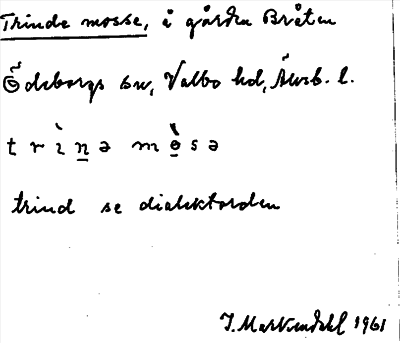 Trinde mosse, å gården Bråten
Ödeborgs sn, Valbo hd, Älvsb. l.
t r ì n̲ ə m ò̲ s ə
trind se dialektorden
J. Markendahl 1961